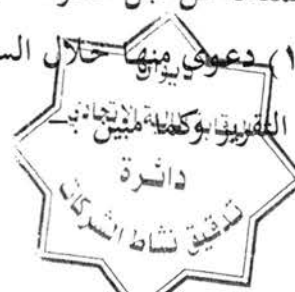 ١) دعوى منها خلال الس
التقرير وكما مبين
ديوان
الرقابة المالية الاتحادي
دائرة
تدقيق نشاط الشركات